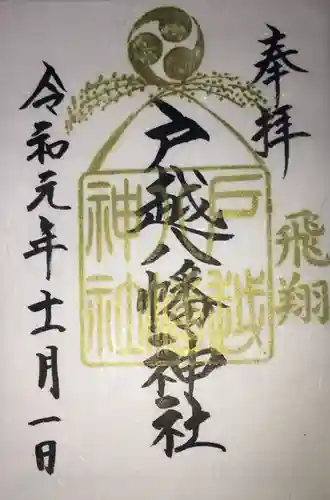 奉拝
飛翔
戸越八幡神社
戸越
神社
令和元年十一月一日